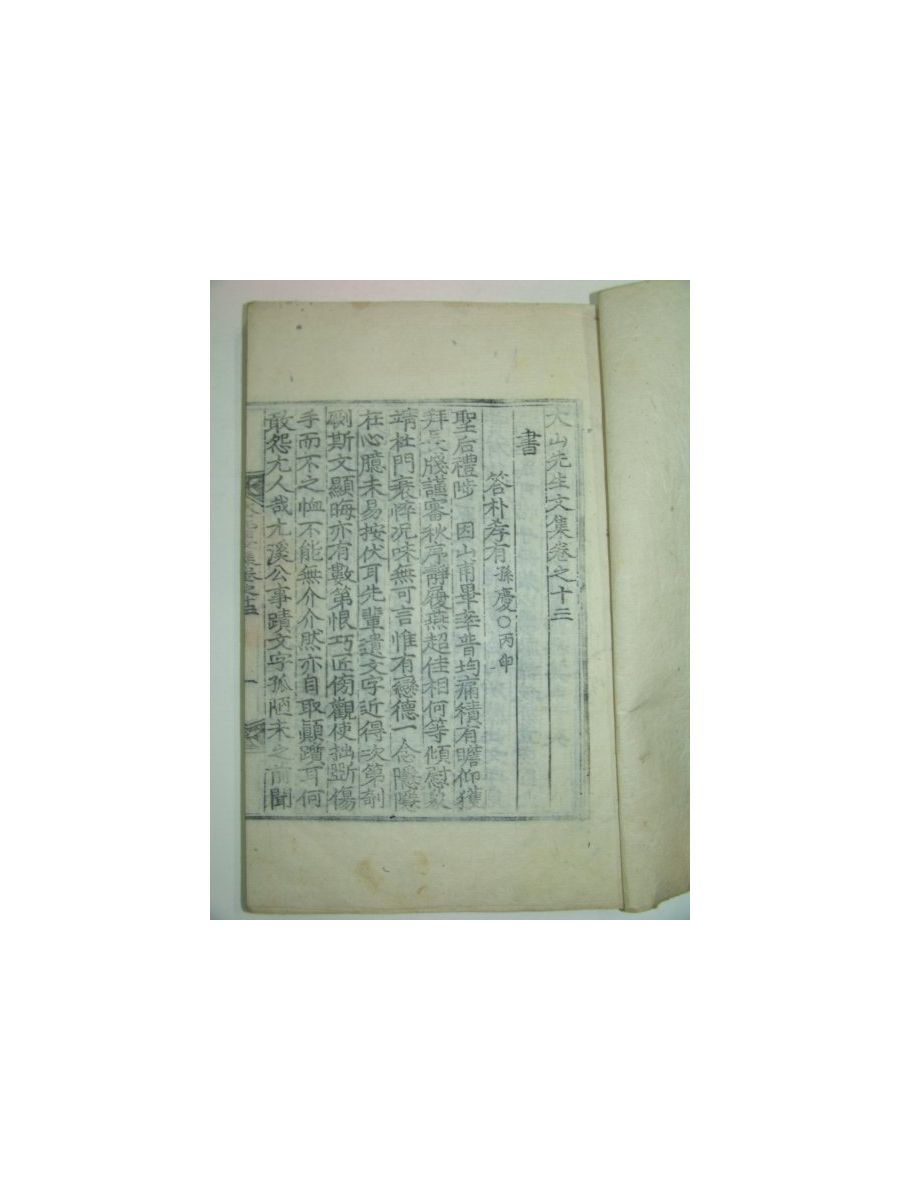 大山先生文集卷之十三
書
答朴孝有 孫慶○丙卯
聖后禮陟 因山甫畢率普均痛積有瞻仰獲
拜長牋謹審秋序靜履燕超佳相何等傾慰
靖杜門衰悴况味無可言惟有戀德一念隱隱
在心臆未易按伏耳先輩遺文字近得次第剞
劂斯文顯晦亦有數第恨巧匠傍觀使拙斲傷
手而不之恤不能無介介然亦自取顚躓耳何
敢怨尤人哉尤溪公事蹟文字孤陋未之前聞
一